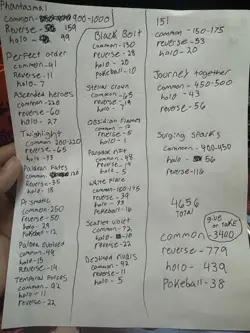 Phantasmal
common- 900-1000
Reverse- 159
holo- 99
Perfect order
common-41
Reverse-11
holo-7
Ascended heroes
common-220
reverse-60
holo-27
Twighlight
common 200-220
reverse-65
holo-33
Paldean Fates
common- 120
Reverse-35
holo-18
Prismatic
common-250
reverse-50
holo-29
Pokeball-12
Paldea Evolved
common-49
holo-15
Reverse-14
Temporal Forces
common-92
holo-11
reverse-22
Black Bolt
common-130
reverse-28
holo-20
Pokeball-10
Stellar Crown
common-65
reverse-19
holo-7
Obsidian Flames
common-12
reverse-1
holo-1
Paradox Rift
common-48
reverse-14
holo-5
White Flare
common-160-175
reverse-39
holo-38
Pokeball-16
Scarlet Violet
common-72
holo-10
reverse-22
Destined rivals
common-92
reverse-11
holo-5
151
common-150-175
reverse-53
holo-20
Journey together
common-450-500
holo-43
reverse-56
Surging sparks
common-400-450
holo-56
reverse-116
4656
Total
give
or take
common 3400
reverse-779
holo-439
Pokeball-38